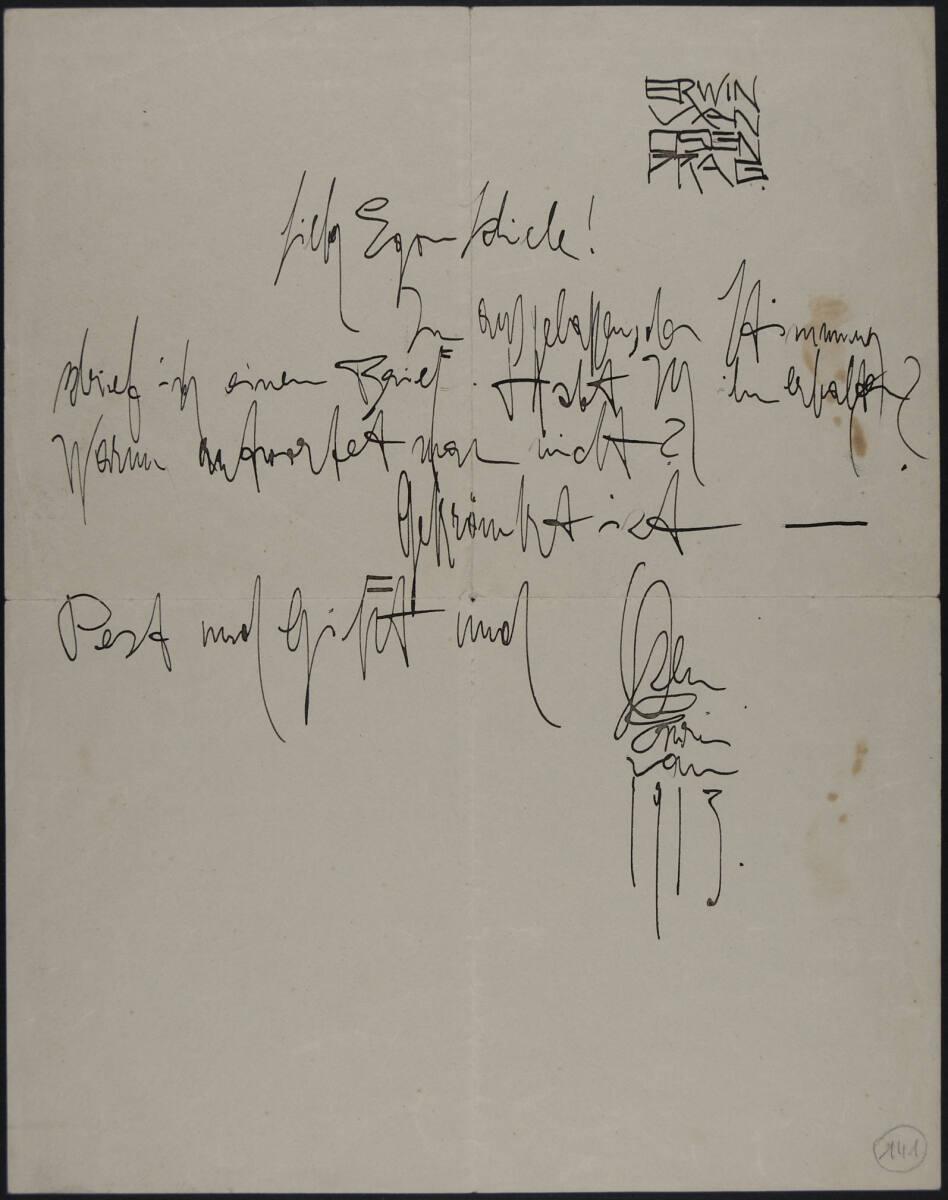 ERWIN
VAN
OSEN
PRAG.
Lieber Egon Schiele!
In ausgelassenster Stimmung
schrieb ich einen Brief. Habt Ihr ihn erhalten?
Warum antwortet man nicht?
Gekränkt ist —
Pest und Gift und
Osen
Erwin
van
1913.
141